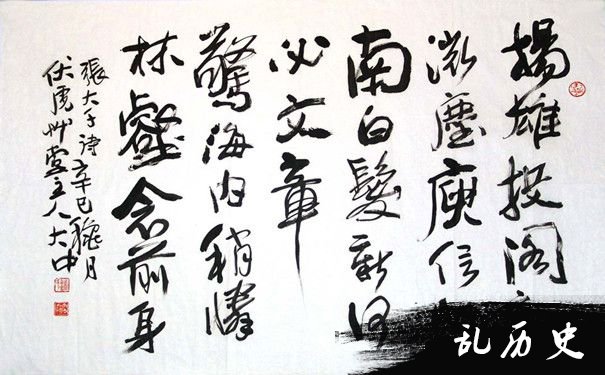 揚雄投阁
微塵庾信
南白髮新何
必文章
驚海内稍憐
林壑念前身
張大千诗辛巳穐月
伏虎艸堂主人大中
乱历史